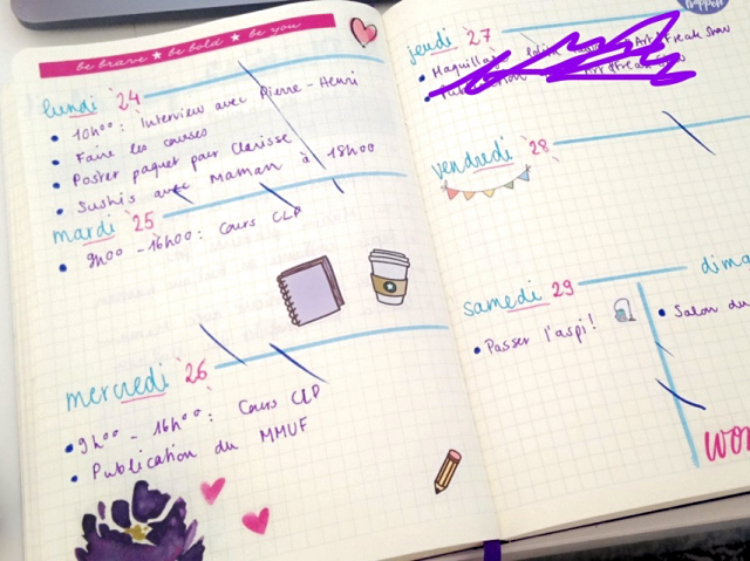 be brave ★ be bold ★ be you
lundi 24
• 10h00 : Interview avec Pierre-Henri
• Faire les courses
• Poster paquet pour Clarisse
• Sushis avec Maman à 18h00
mardi 25
• 9h00 - 16h00 : Cours CLP
mercredi 26
• 9h00 - 16h00 : Cours CLP
• Publication du MMUF
jeudi 27
• Maquillage Art Freak Show
• Art Freak Show
vendredi 28
samedi 29
• Passer l'aspi !
dima
• Salon du
WO